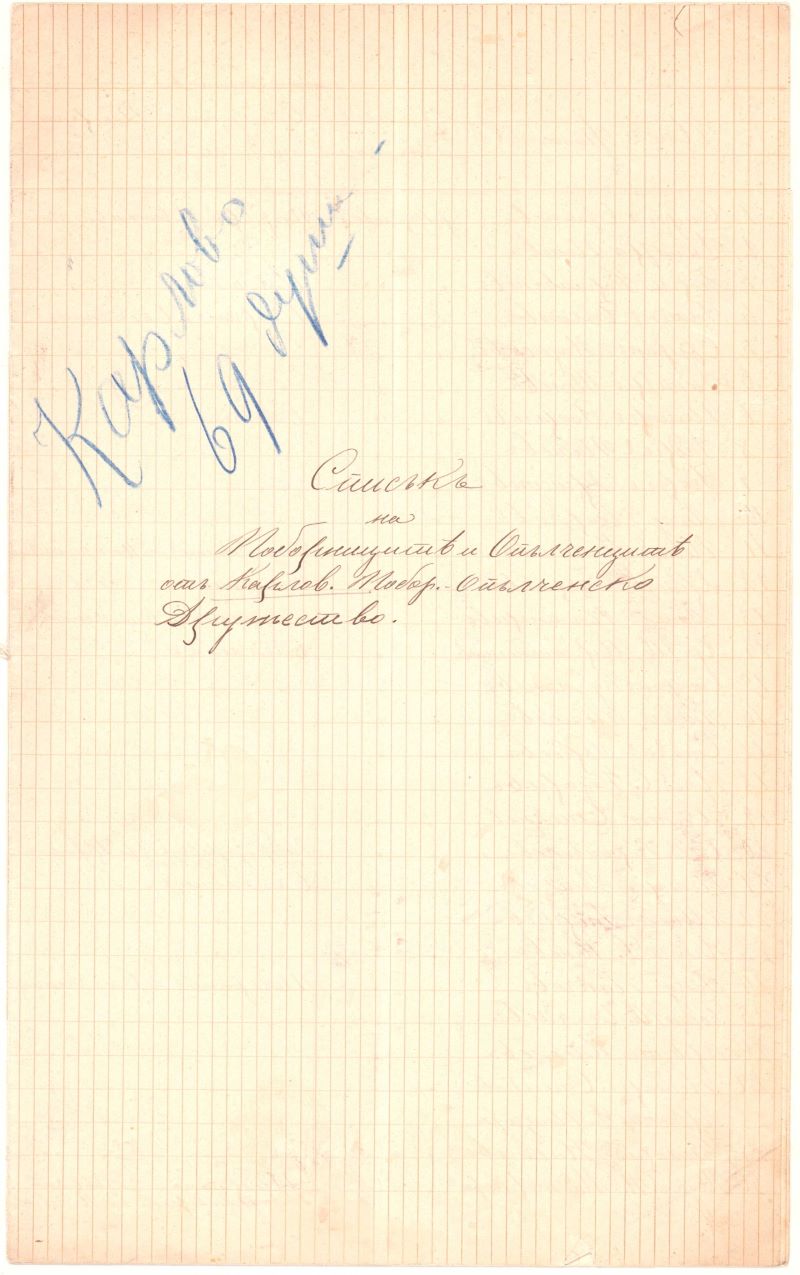 Карлово
69 души
Списъкъ
на
Поборницитѣ и Опълченцитѣ
отъ Карлов. Побор.-Опълченско
Дружество.